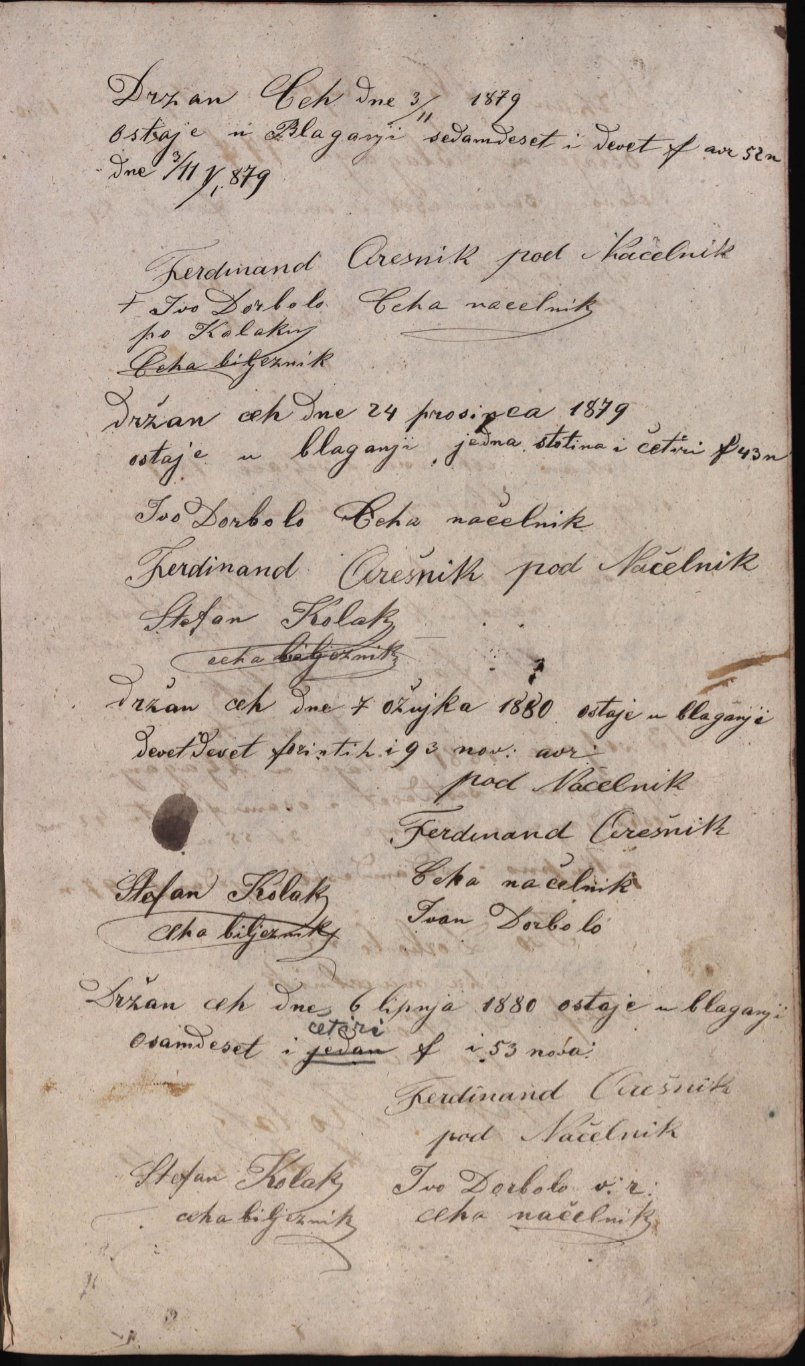 Držan Ceh dne 3/11 1879
ostaje u Blaganji sedamdeset i devet f avr 52 n
dne 3/11 1879
Ferdinand Orešnik pod Načelnik
+ Ivo Dorbolo Ceha načelnik
po Kolaku
Ceha biljeznik
Držan ceh dne 24 prosinca 1879
ostaje u blaganji jedna stotina i četiri f 43 n
Ivo Dorbolo Ceha načelnik
Ferdinand Orešnik pod Načelnik
Stefan Kolak
ceha biljeznik
Držan ceh dne 7 ožujka 1880 ostaje u blaganji
devetdevet forintih i 93 nov: avr:
pod Načelnik
Ferdinand Orešnik
Stefan Kolak Ceha načelnik
ceha biljeznik Ivan Dorbolo
Držan ceh dne 6 lipnja 1880 ostaje u blaganji
četiri
osamdeset i jedan f i 53 nova:
Ferdinand Orešnik
pod Načelnik
Stefan Kolak Ivo Dorbolo v: r:
ceha biljeznik ceha načelnik